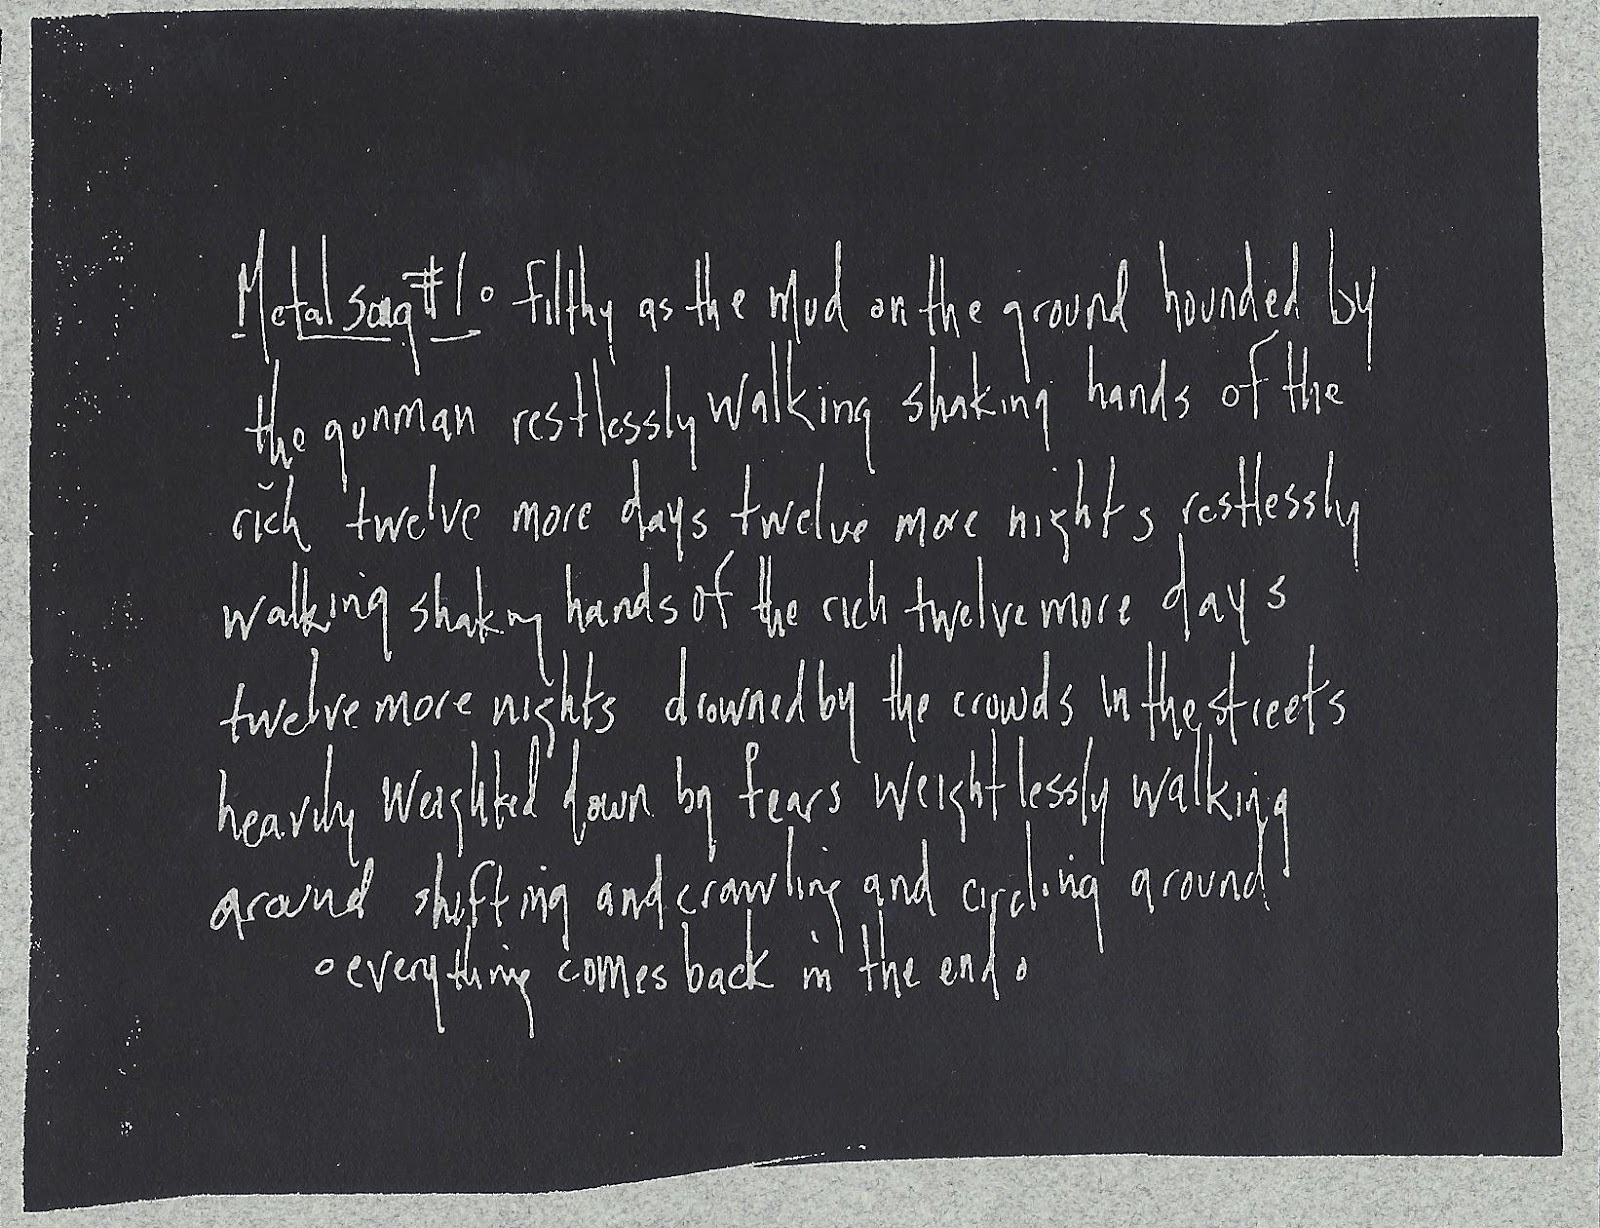 Metal Song #1 ° filthy as the mud on the ground hounded by
the gunman restlessly walking shaking hands of the
rich twelve more days twelve more nights restlessly
walking shaking hands of the rich twelve more days
twelve more nights drowned by the crowds in the streets
heavily weighted down by fears weightlessly walking
around shifting and crawling and circling around
° everything comes back in the end °